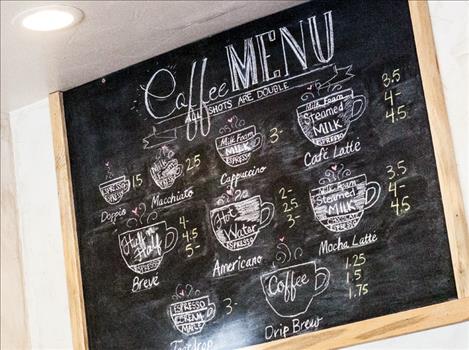 Coffee MENU
ALL SHOTS ARE DOUBLE
ESPRESSO
1.5
Doppio
Milk Foam
ESPRESSO
2.5
Macchiato
Milk Foam
MILK
ESPRESSO
3-
Cappuccino
Milk Foam
Steamed
MILK
ESPRESSO
3.5
4-
4.5
Café Latté
Half
n
Half
ESPRESSO
4-
4.5
5-
Brevé
Hot
Water
ESPRESSO
2-
2.5
3-
Americano
Milk Foam
Steamed
MILK
CHOCOLATE
ESPRESSO
3.5
4-
4.5
Mocha Latté
ESPRESSO
CREAM
MALT
3-
Coffee
1.25
1.5
1.75
Drip Brew